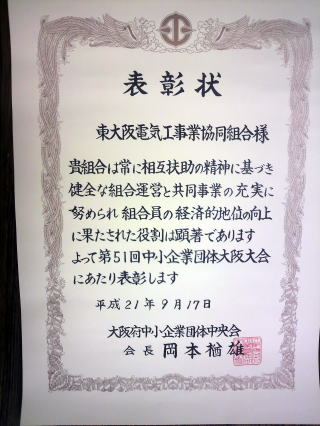 表彰状
東大阪電気工事業協同組合様
貴組合は常に相互扶助の精神に基づき
健全な組合運営と共同事業の充実に
努められ組合員の経済的地位の向上
に果たされた役割は顕著であります
よって第51回中小企業団体大阪大会
にあたり表彰します
平成21年9月17日
大阪府中小企業団体中央会
会長 岡本楢雄